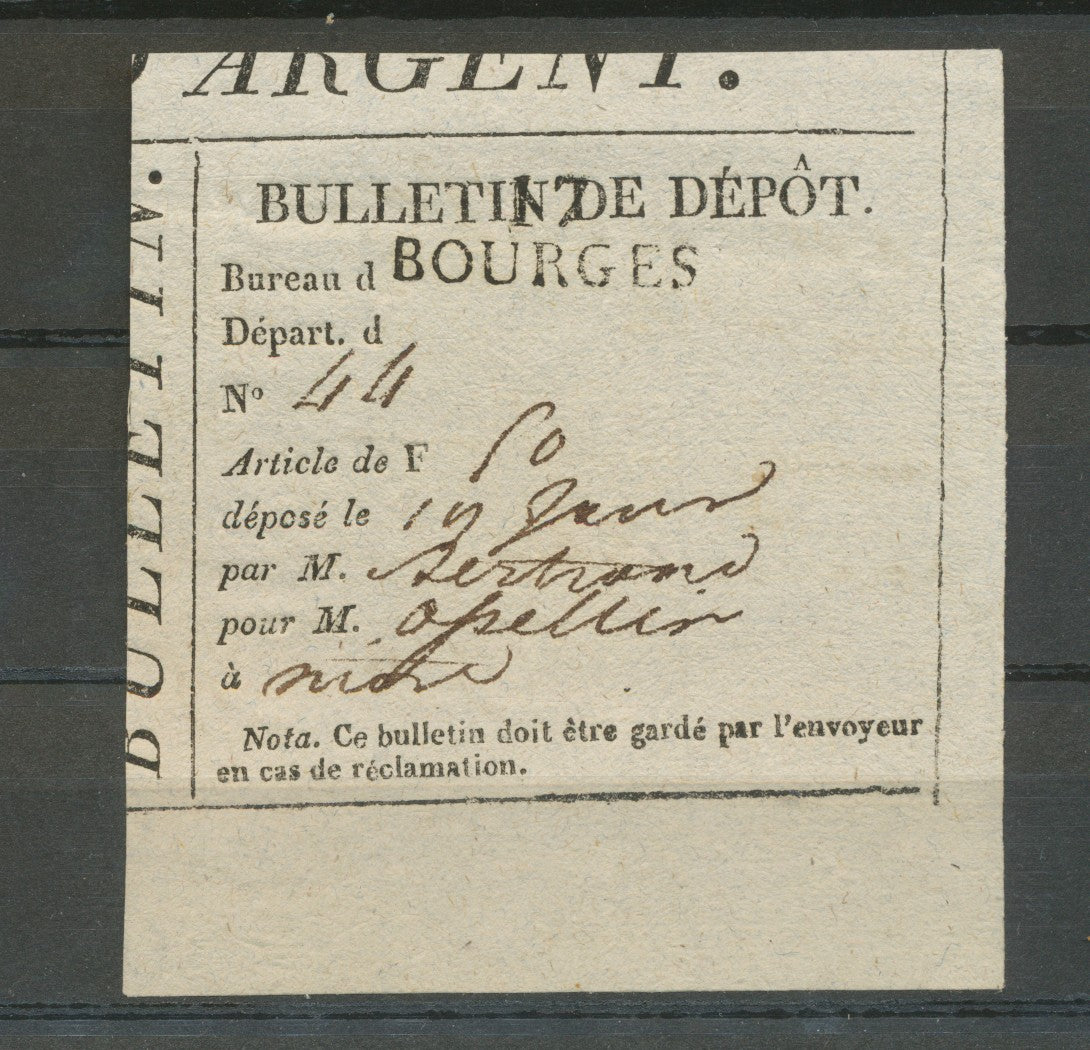 D'ARGENT.
BULLETIN.
BULLETIN DE DÉPÔT.
17
Bureau d BOURGES
Départ. d
Nº 44
Article de F 50
déposé le 19 Janv
par M. Bertrand
pour M.
à
Nota. Ce bulletin doit être gardé par l'envoyeur
en cas de réclamation.